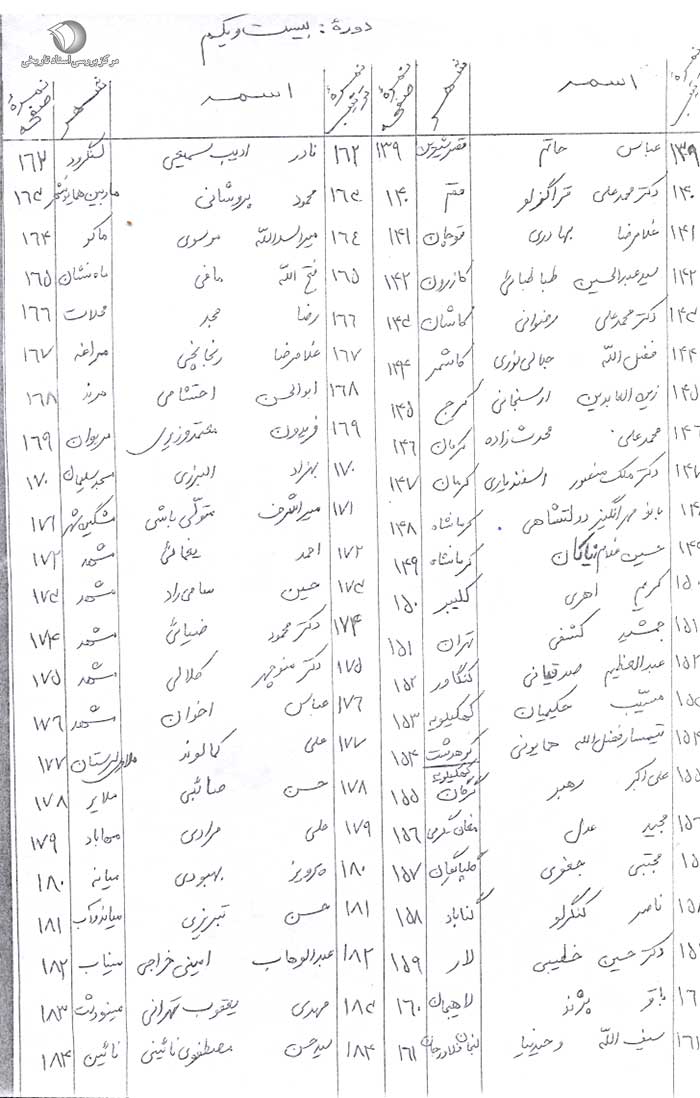 مرکز بررسی اسناد تاریخی
دورهٔ: بیست و یکم
نمرهٔ ترتیب اسم شهر نمرهٔ صفحه
۱۳۹ عباس حاتم قصرشیرین ۱۳۹
۱۴۰ دکتر محمد علی قراگزلو قم ۱۴۰
۱۴۱ غلامرضا بهادری قوچان ۱۴۱
۱۴۲ سیدعبدالحسین طباطبائی کازرون ۱۴۲
۱۴۳ دکتر محمد علی رضوانی کاشان ۱۴۳
۱۴۴ فضل الله جلالی نوری کاشمر ۱۴۴
۱۴۵ زین العابدین ارسنجانی کرج ۱۴۵
۱۴۶ محمد علی محدث زاده کرمان ۱۴۶
۱۴۷ دکتر ملک منصور اسفندیاری کرمان ۱۴۷
۱۴ بانو مهرانگیز دولتشاهی کرمانشاه ۱۴۸
۱۴۹ حسین غلام نیاکان کرمانشاه ۱۴۹
۱۵۰ کریم اهری کلیبر ۱۵۰
۱۵۱ جمشید کشفی تهران ۱۵۱
۱۵۲ عبدالعظیم صدقیانی کنگاور ۱۵۲
۱۵۳ مسیب حکیمان کهکیلویه ۱۵۳
۱۵۴ تیمسار فضل الله همایونی کوهدشت ۱۵۴
کهکیلویه
۱۵۵ علی اکبر رهبر گرگان ۱۵۵
۱۵۶ مجید عدل ۱۵۶
۱۵ مجتبی جعفری گلپایگان ۱۵۷
۱۵۸ ناصر کنگرلو گناباد ۱۵۸
۱۵۹ دکتر حسین خطیبی لار ۱۵۹
۱۶ باقر لاهیجان ۱۶۰
۱۶۱ سیف الله وحیدنیا لنجان فلاورجان ۱۶۱
نمرهٔ ترتیب اسم شهر نمرهٔ صفحه
۱۶۲ نادر ادیب سمیعی لنگرود ۱۶۲
۱۶۳ محمود پروشانی ماربین همایونشهر ۱۶۳
۱۶۴ میراسدالله موسوی ماکو ۱۶۴
۱۶۵ فتح الله مافی ماه نشان ۱۶۵
۱۶۶ رضا مجد محلات ۱۶۶
۱۶۷ غلامرضا زنجانچی مراغه ۱۶۷
۱۶۸ ابوالحسن احتشامی مرند ۱۶۸
۱۶۹ فریدون معتمدوزیری مریوان ۱۶۹
۱۷۰ بهزاد البرزی مسجدسلیمان ۱۷۰
۱۷۱ میراشرف متولّی باشی مشکین شهر ۱۷۱
۱۷۲ احمد یغمائی مشهد ۱۷۲
۱۷۳ حسین سامی راد مشهد ۱۷۳
۱۷۴ دکتر محمود ضیائی مشهد ۱۷۴
۱۷۵ دکتر منوچهر کلالی مشهد ۱۷۵
۱۷۶ عباس اخوان مشهد ۱۷۶
۱۷۷ علی کمالوند ملاوی لرستان ۱۷۷
۱۷۸ حسن صائبی ملایر ۱۷۸
۱۷۹ علی مرادی مهاباد ۱۷۹
۱۸۰ پرویز بهبودی میانه ۱۸۰
۱۸۱ حسن تبریزی میاندوآب ۱۸۱
۱۸۲ عبدالوهاب امینی خراجی میناب ۱۸۲
۱۸۳ مهدی یعقوب تهرانی مینودشت ۱۸۳
۱۸۴ سید حسن مصطفوی نائینی نائین ۱۸۴